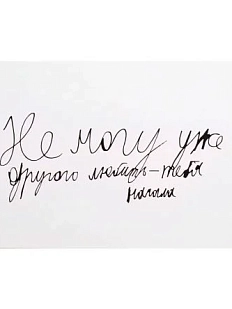 Не могу уже
другого любить – тебя